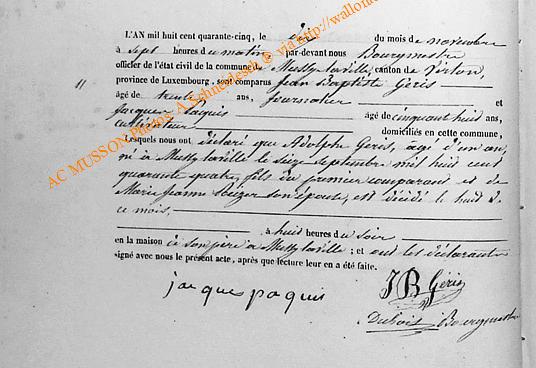 L'AN mil huit cent quarante-cinq, le dix du mois de novembre
à sept heures du matin, par-devant nous Bourgmestre
officier de l'état civil de la commune de Mussy-la-ville, canton de Virton,
11
province de Luxembourg, sont comparus Jean Baptiste Géris
âgé de trente ans, journalier et
Jacques Paquis âgé de cinquant huit ans,
cultivateur domiciliés en cette commune,
Lesquels nous ont déclaré que Adolphe Geris, âgé d'un an,
né à Mussy-laville le seize septembre mil huit cent
quarante quatre, fils du premier comparant et de
Marie Jeanne son épouse, est décédé le huit d
ce mois,
à huit heures du soir
en la maison de son père à Mussy laville; et ont les déclarants
signé avec nous le présent acte, après que lecture leur en a été faite.
jacque paquis
J B Géris
Dubois Bourgmestre
AC MUSSON Photos A.Schneidesch @ via http://wallo